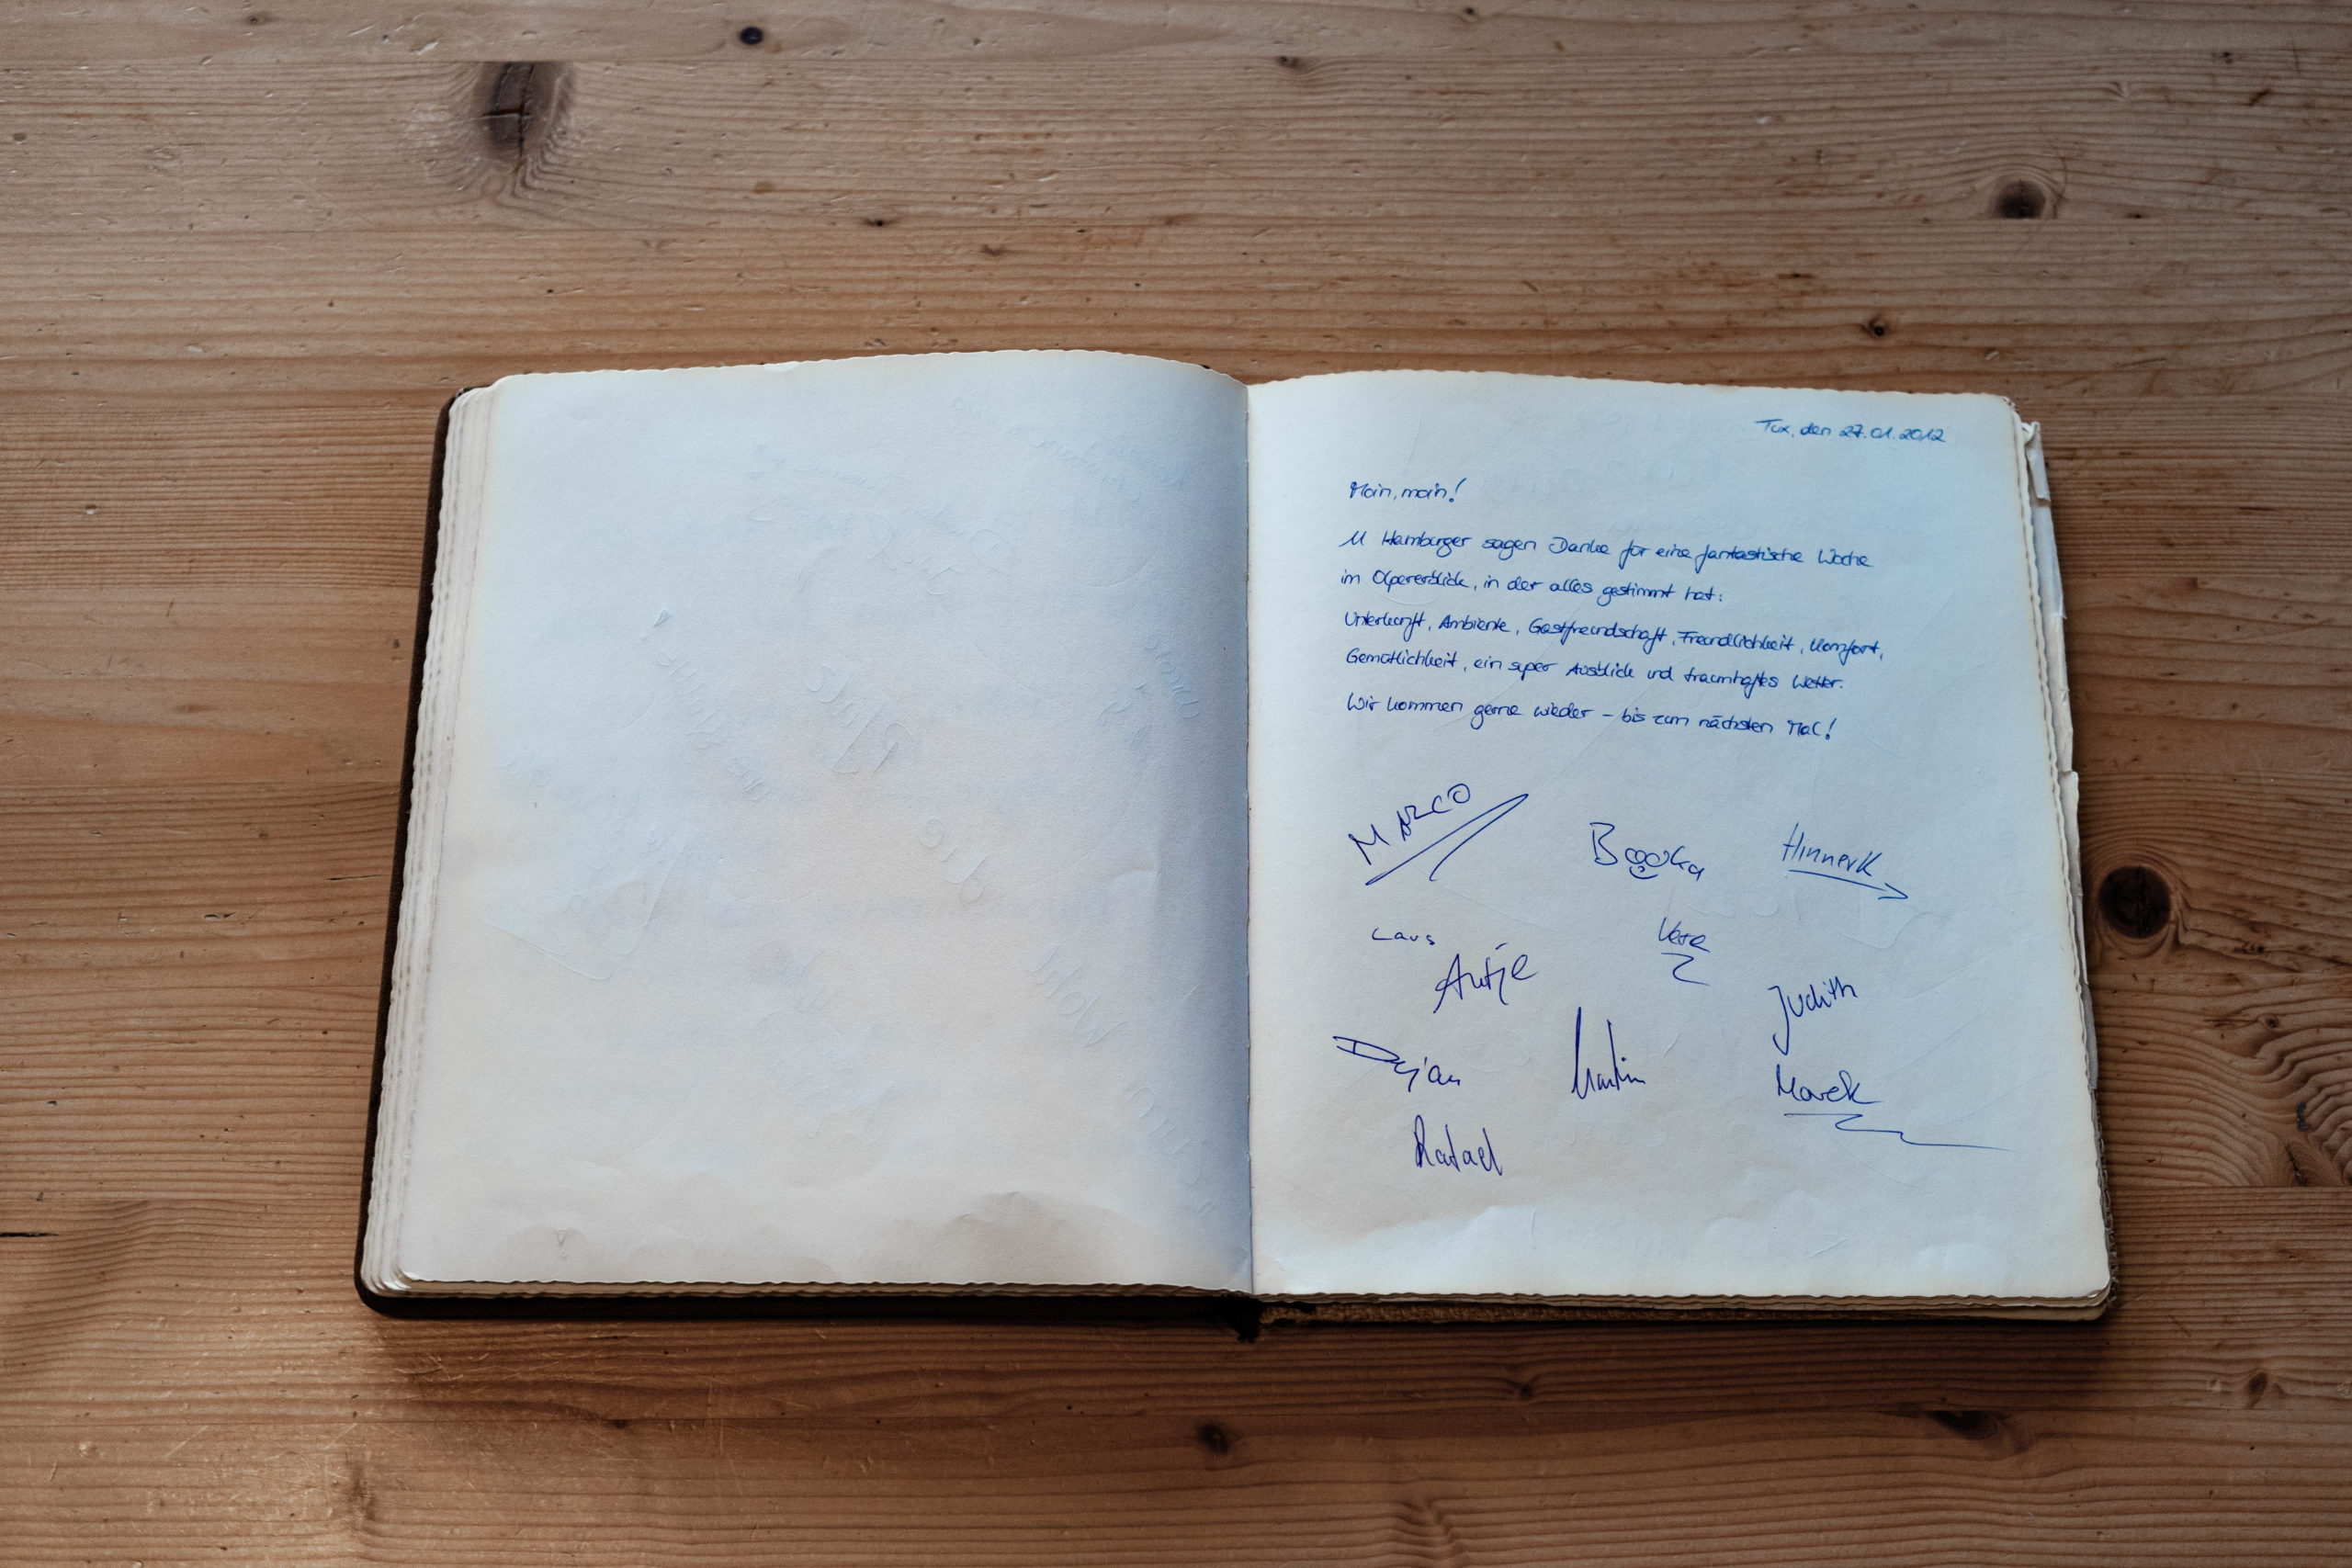 Tux, den 27.01.2012
Moin, moin!
11 Hamburger sagen Danke für eine fantastische Woche
im Olpererblick, in der alles gestimmt hat:
Unterkunft, Ambiente, Gastfreundschaft, Freundlichkeit, Komfort,
Gemütlichkeit, ein super Ausblick und traumhaftes Wetter.
Wir kommen gerne wieder – bis zum nächsten Mal!
MARCO
Hinnerk
Lars
Vera
Antje
Judith
Dejan
Martin
Marek
Rafael